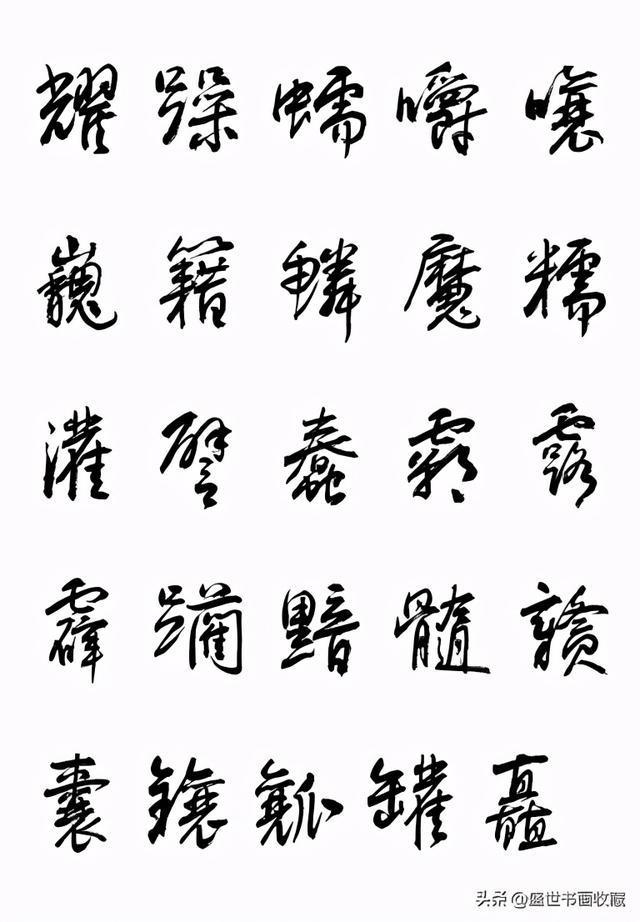 耀 躁 蠕 嚼 嚷
巍 籍 鳞 魔 糯
灌 譬 蠢 霸 露
霹 躏 黯 髓 赣
囊 镶 瓤 罐 矗
头条 @盛世书画收藏